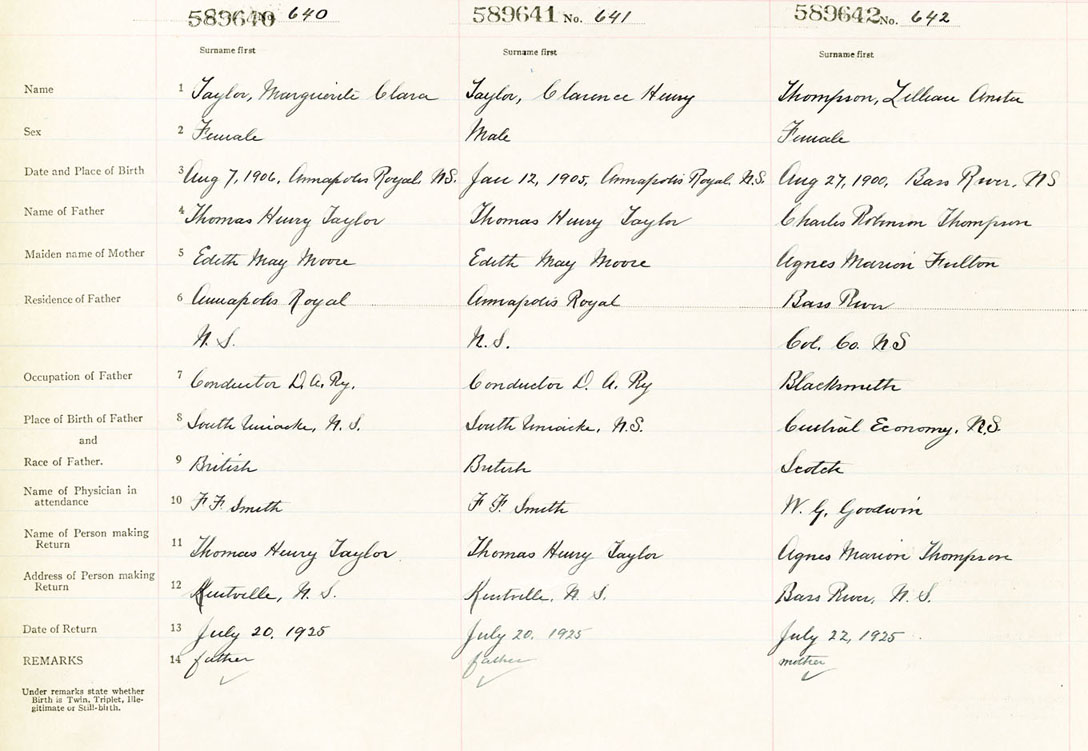 589640 No. 640 589641 No. 641 589642 No. 642
Surname first Surname first Surname first
Name 1 Taylor, Marguerite Clara Taylor, Clarence Henry Thompson, Lillian
Sex 2 Female Male Female
Date and Place of Birth 3 Aug 7, 1906, Annapolis Royal, N.S. Jan 12, 1905, Annapolis Royal, N.S. Aug 27, 1900, Bass River, NS
Name of Father 4 Thomas Henry Taylor Thomas Henry Taylor Charles Robinson Thompson
Maiden name of Mother 5 Edith May Moore Edith May Moore Agnes Marion Fulton
Residence of Father 6 Annapolis Royal Annapolis Royal Bass River
N. S. N. S. Col. Co. NS
Occupation of Father 7 Conductor D. A. Ry. Conductor D. A. Ry Blacksmith
Place of Birth of Father 8 South Uniacke, N. S. South Uniacke, N.S. Central Economy, N.S.
and
Race of Father. 9 British British Scotch
Name of Physician in
attendance 10 F F Smith F F. Smith W. G. Goodwin
Name of Person making
Return 11 Thomas Henry Taylor Thomas Henry Taylor Agnes Marion Thompson
Address of Person making
Return 12 Kentville, N. S. Kentville, N. S. Bass River, N. S.
Date of Return 13 July 20, 1925 July 20, 1925 July 22, 1925
REMARKS 14 father father mother
Under remarks state whether
Birth is Twin, Triplet, Ille-
gitimate or Still-birth.